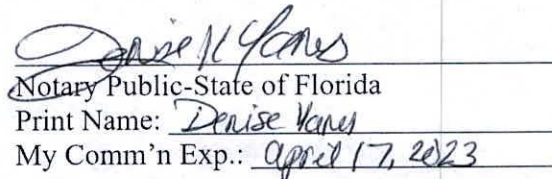 Denise K Yanes
Notary Public-State of Florida
Print Name: Denise Yanes
My Comm'n Exp.: April 17, 2023